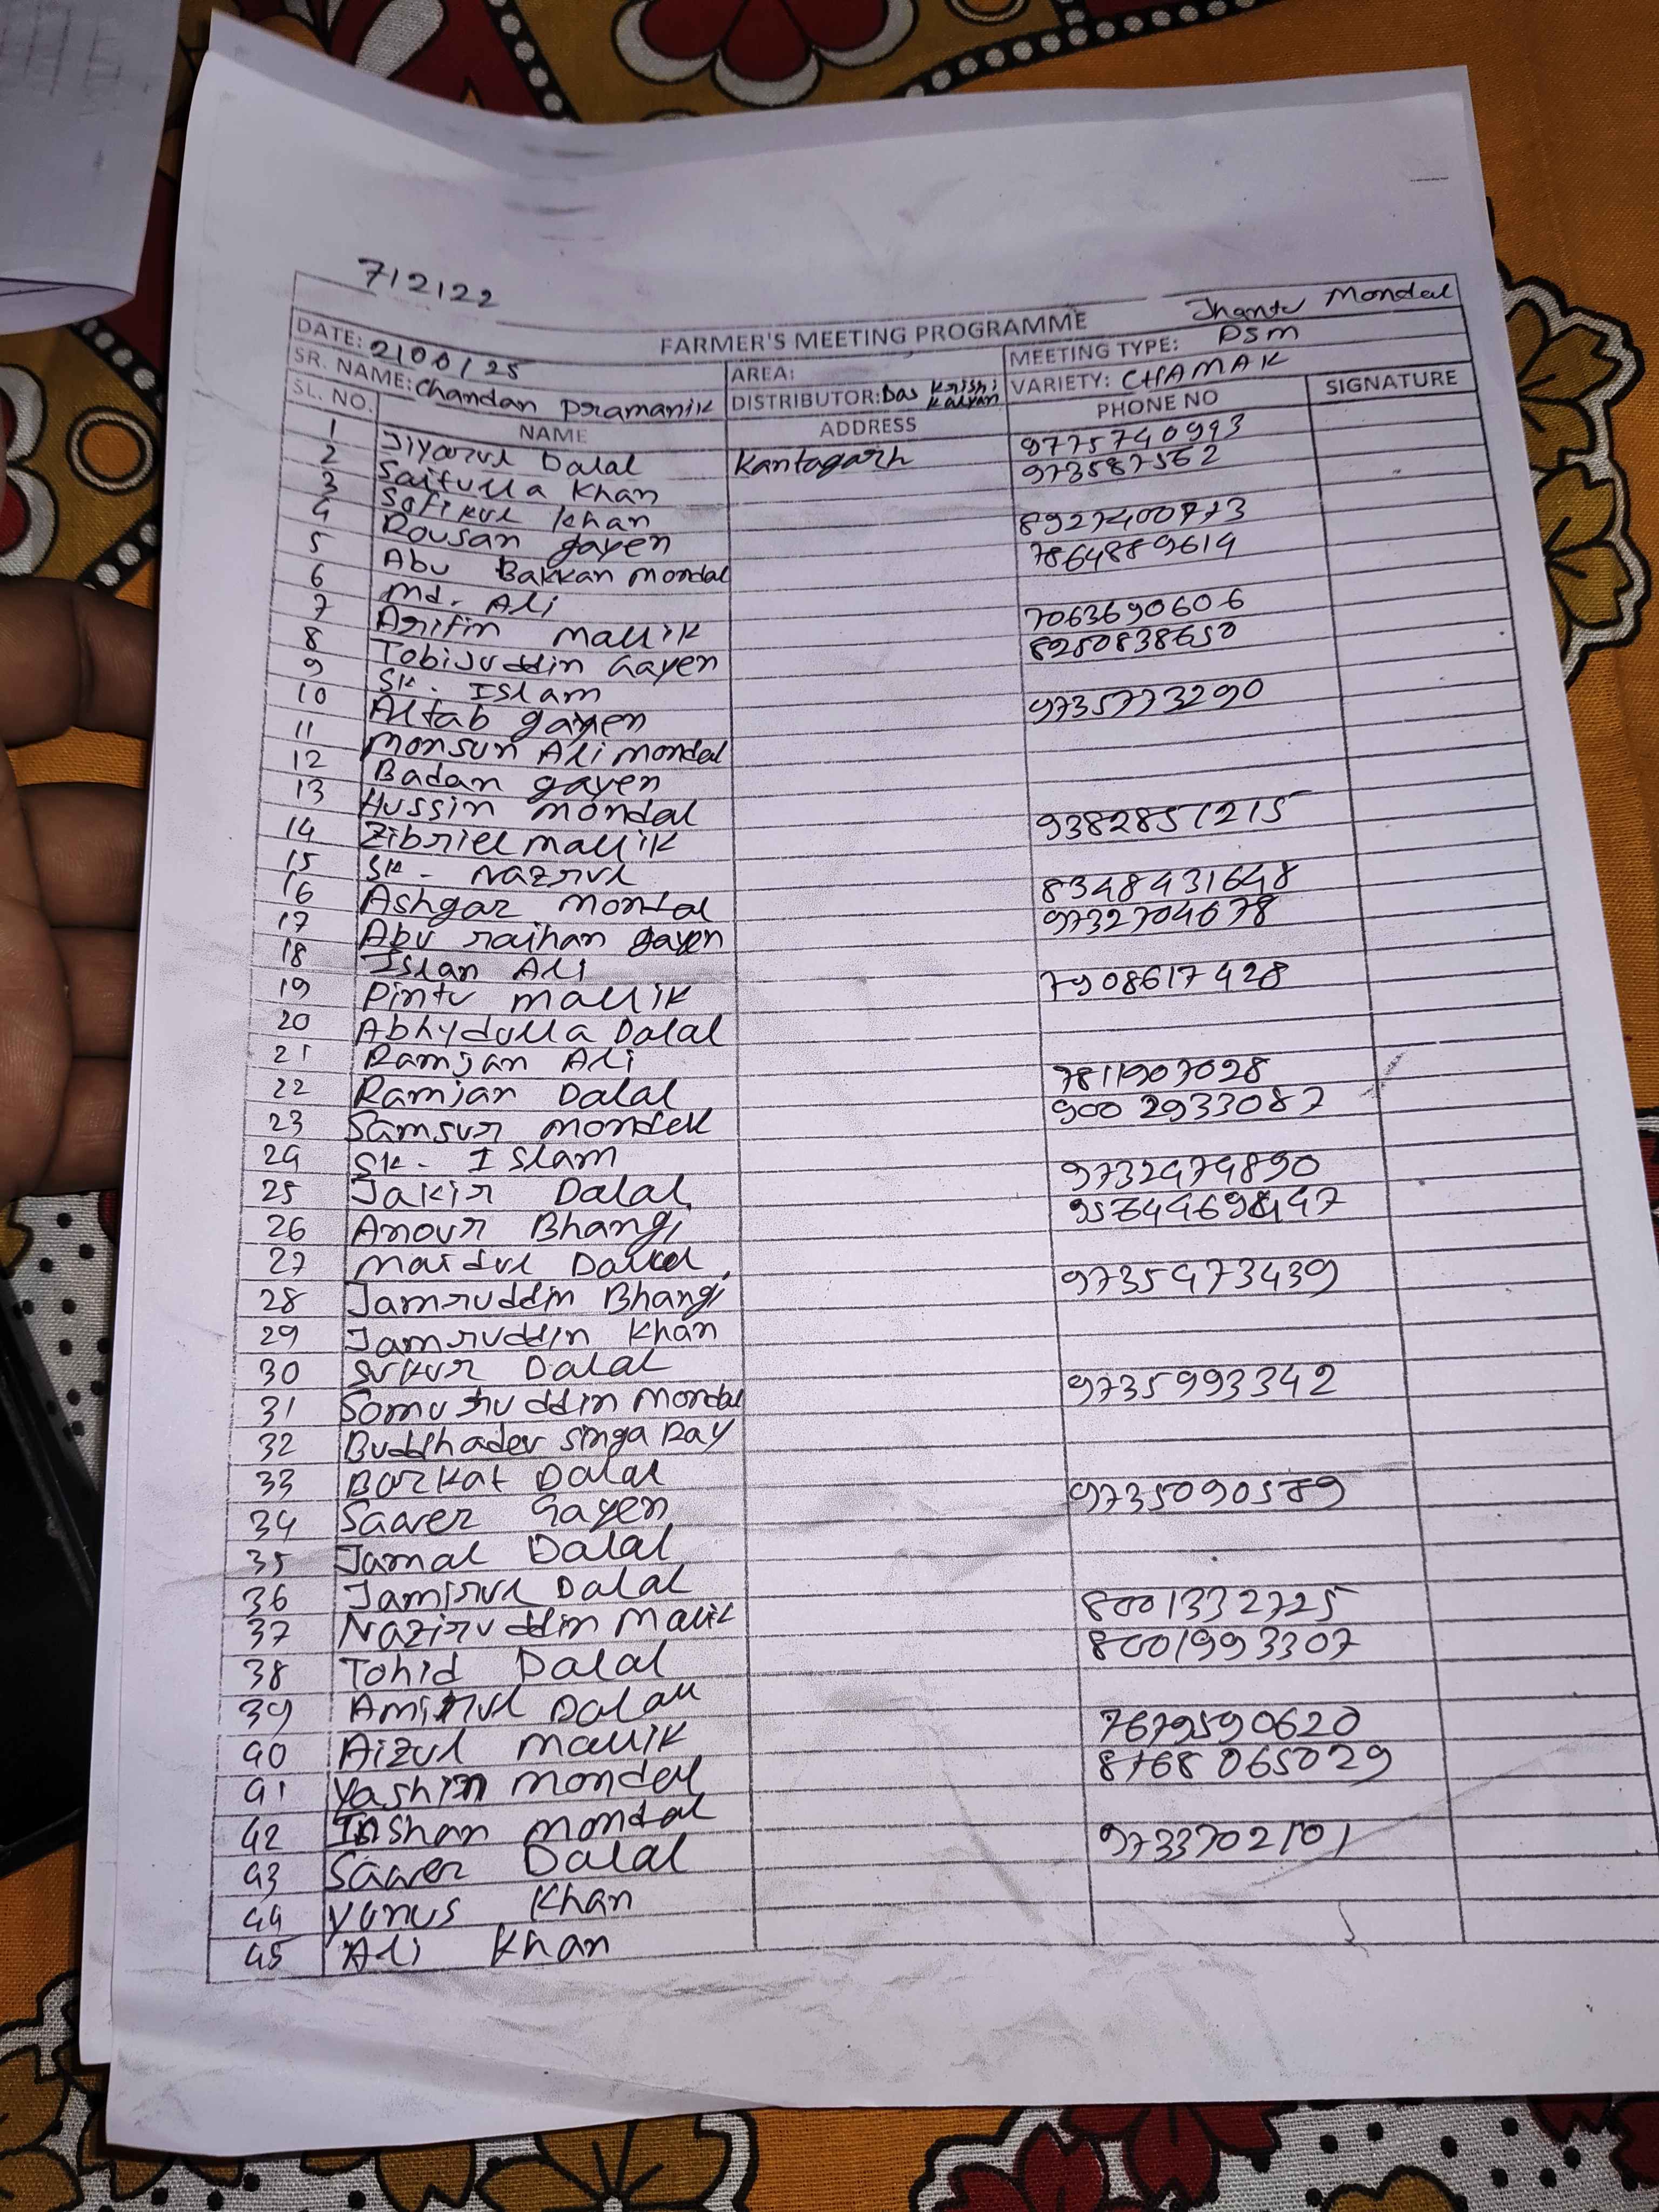 712122
FARMER'S MEETING PROGRAMME Jhantu Mondal
DATE: 210 AREA: MEETING TYPE: PSM
SR. NAME: Chandan Pramanik DISTRIBUTOR: Das Krishi Kalyan VARIETY: CHAMAK
SL. NO. NAME ADDRESS PHONE NO SIGNATURE
1 Jiyarul Dalal Kantagarh 9775740993
2 Saifulla Khan 973587562
3 Sofikul Khan
4 Rousan gayen 8927400773
5 Abu Bakkan Mondal 7864889614
6 Md. Ali
7 Arifin Mallik 7063690606
8 Tobijuddin Gayen 8250838650
9 SK. Islam
10 Altab gayen 9735773290
11 Monsur Ali Mondal
12 Badan gayen
13 Hussin Mondal
14 Zibriel Mallik 9382851215
15 SK. Nazrul
16 Ashgar Mondal 8348431648
17 Abu raihan gayen 9732704678
18 Islan Ali
19 Pintu Mallik 7908617428
20 Abhydulla Dalal
21 Ramjan Ali
22 Ramjan Dalal 7811907028
23 Samsur Mondal 900 2933087
24 SK. Islam
25 Jakir Dalal 9732474890
26 Anour Bhangi
27 Maidul Dalal
28 Jamruddin Bhangi 9735473439
29 Jamruddin Khan
30 Sukur Dalal
31 Somuruddin Mondal 9735993342
32 Buddhadev Singa Ray
33 Barkat Dalal
34 Saarer Gayen 9735090589
35 Jamal Dalal
36 Jamirul Dalal
37 Naziruddin Malik 8001332725
38 Tohid Dalal 8001993307
39 Amirul Dalal
40 Aizul Mallik 7679590620
41 Yashin Mondal 8768065029
42 Inshan Mondal
43 Saarer Dalal 9733702101
44 Yunus Khan
45 Ali Khan